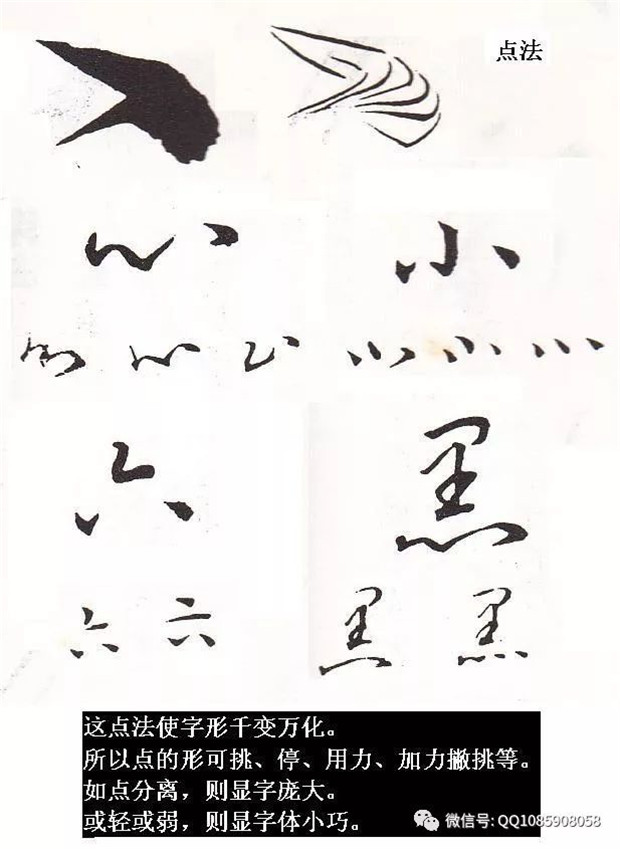 点法
心 小
心 心 心 小 小 小
六 黑
六 六 黑 黑
这点法使字形千变万化。
所以点的形可挑、停、用力、加力撇挑等。
如点分离，则显字庞大。
或轻或弱，则显字体小巧。
微信号: QQ1085908058